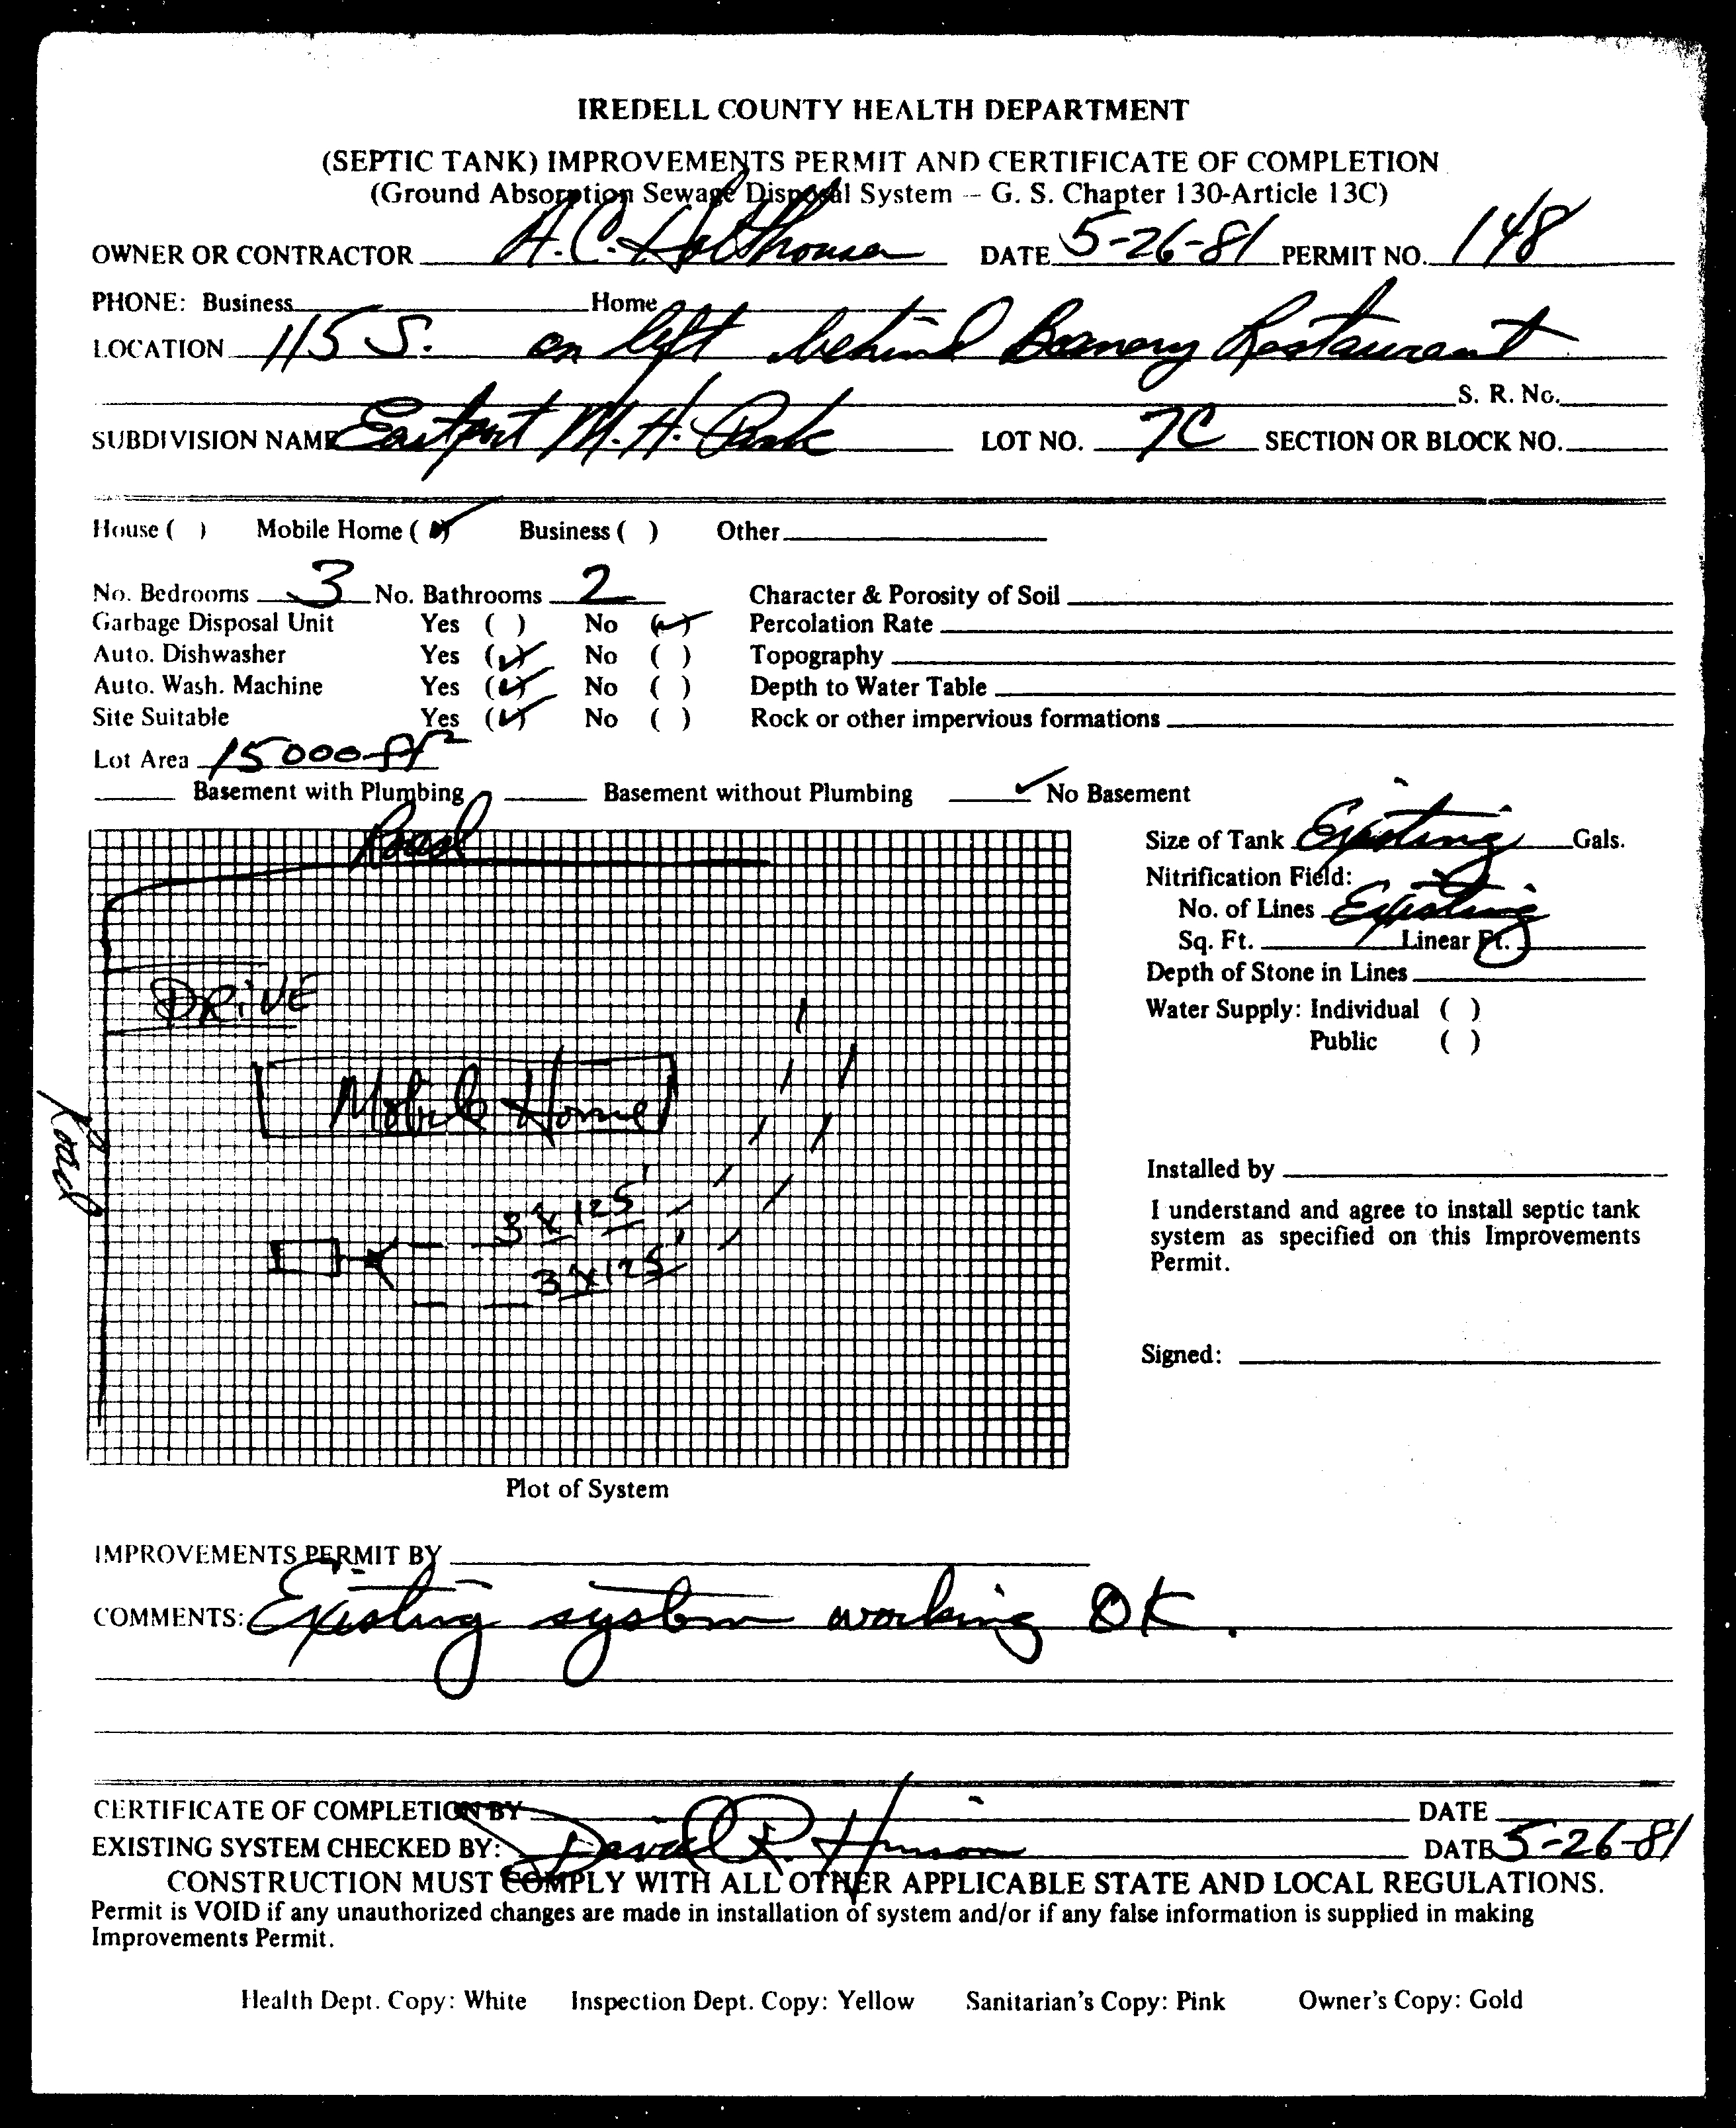 IREDELL COUNTY HEALTH DEPARTMENT
(SEPTIC TANK) IMPROVEMENTS PERMIT AND CERTIFICATE OF COMPLETION
(Ground Absorption Sewage Disposal System -- G. S. Chapter 130-Article 13C)
OWNER OR CONTRACTOR A.C. Holthouser DATE 5-26-81 PERMIT NO. 148
PHONE: Business Home
LOCATION 115 S. on left behind Beanery Restaurant
S. R. No.
SUBDIVISION NAME Eastport M.H. Park LOT NO. 7C SECTION OR BLOCK NO.
House ( ) Mobile Home (✓) Business ( ) Other
No. Bedrooms 3 No. Bathrooms 2 Character & Porosity of Soil
Garbage Disposal Unit Yes ( ) No (✓) Percolation Rate
Auto. Dishwasher Yes (✓) No ( ) Topography
Auto. Wash. Machine Yes (✓) No ( ) Depth to Water Table
Site Suitable Yes (✓) No ( ) Rock or other impervious formations
Lot Area 15000 ft²
Basement with Plumbing Basement without Plumbing ✓ No Basement
Road
Size of Tank Existing Gals.
Nitrification Field:
No. of Lines Existing
Sq. Ft. Linear Ft.
Depth of Stone in Lines
DRIVE
Water Supply: Individual ( )
Public ( )
Mobile Home
Road
Installed by
3' x 125'
3' x 125'
I understand and agree to install septic tank
system as specified on this Improvements
Permit.
Signed:
Plot of System
IMPROVEMENTS PERMIT BY
COMMENTS: Existing system working OK.
CERTIFICATE OF COMPLETION BY DATE
EXISTING SYSTEM CHECKED BY: David R. DATE 5-26-81
CONSTRUCTION MUST COMPLY WITH ALL OTHER APPLICABLE STATE AND LOCAL REGULATIONS.
Permit is VOID if any unauthorized changes are made in installation of system and/or if any false information is supplied in making
Improvements Permit.
Health Dept. Copy: White Inspection Dept. Copy: Yellow Sanitarian's Copy: Pink Owner's Copy: Gold